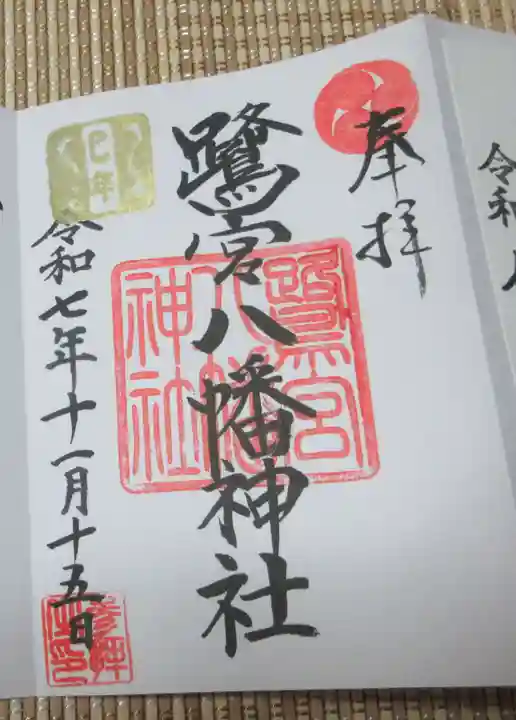 奉拝
鷺宮八幡神社
鷺宮
八幡
神社
巳年
令和七年十一月十五日
参拝
令和